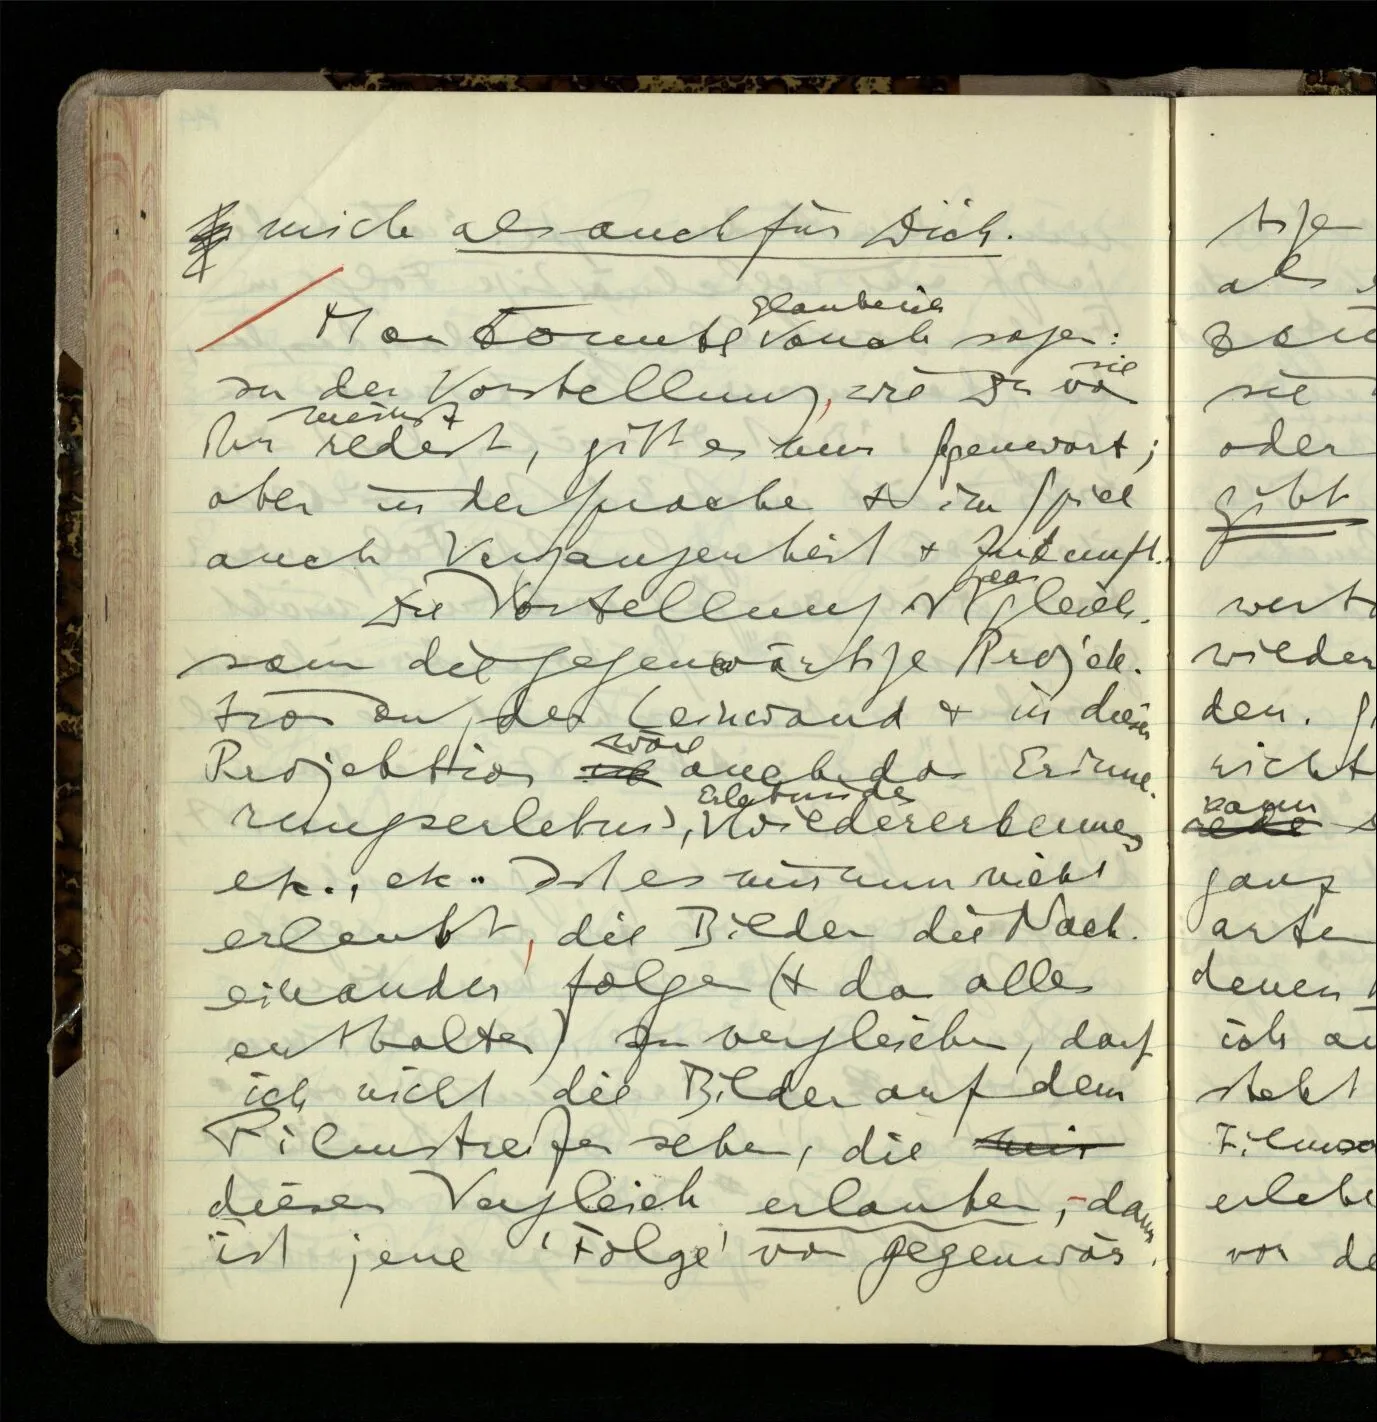 mich als auch für Dich.
Man könnte glaube ich auch sagen:
in der Vorstellung, wie Du sie
Dir meinst redest, gibt es nur Gegenwart;
aber in der Sprache & im Spiel
auch Vergangenheit & Zukunft.
Die Vorstellung ist gleich-
sam die gegenwärtige Projek-
tion auf der Leinwand & in dieser
Projektion wäre auch das Erinne-
rungserlebnis, Erlebnis des Wiedererkennens
etc., etc.. Ist es mir nun nicht
erlaubt, die Bilder die Nach-
einander folgen (& da alles
enthalten) zu vergleichen, darf
ich nicht die Bilder auf dem
Filmstreifen sehen, die mir
diesen Vergleich erlauben, – dann
ist jene 'Folge' von gegenwär-
tige
als
sie
oder
gibt
wieder
den.
nicht
kann
rede
ganz
arten
denen
ich
steht
vor